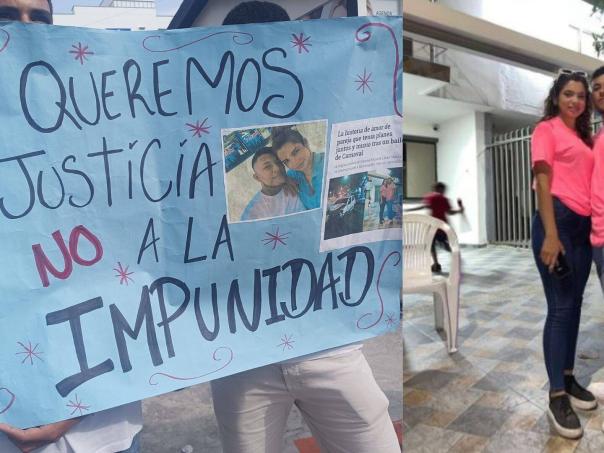 QUEREMOS
JUSTICIA
NO A LA
IMPUNIDAD
La historia de amor de
pareja que tenía planes
juntos y murió tras un bail
de Carnaval